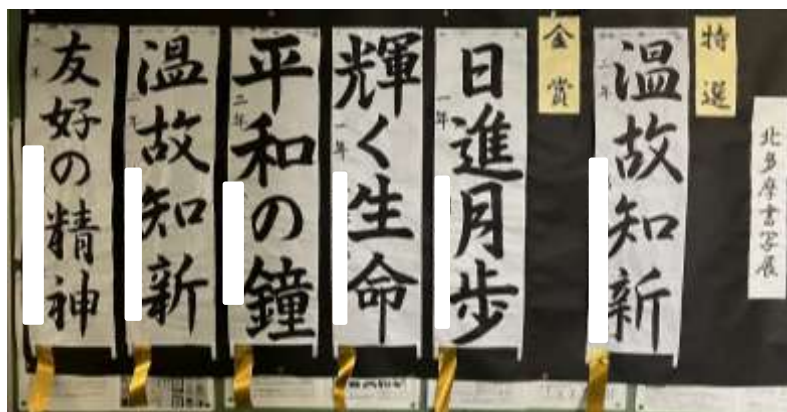 北多摩書写展
特選
温故知新
二年
金賞
日進月歩
一年
輝く生命
一年
平和の鐘
二年
温故知新
一年
友好の精神